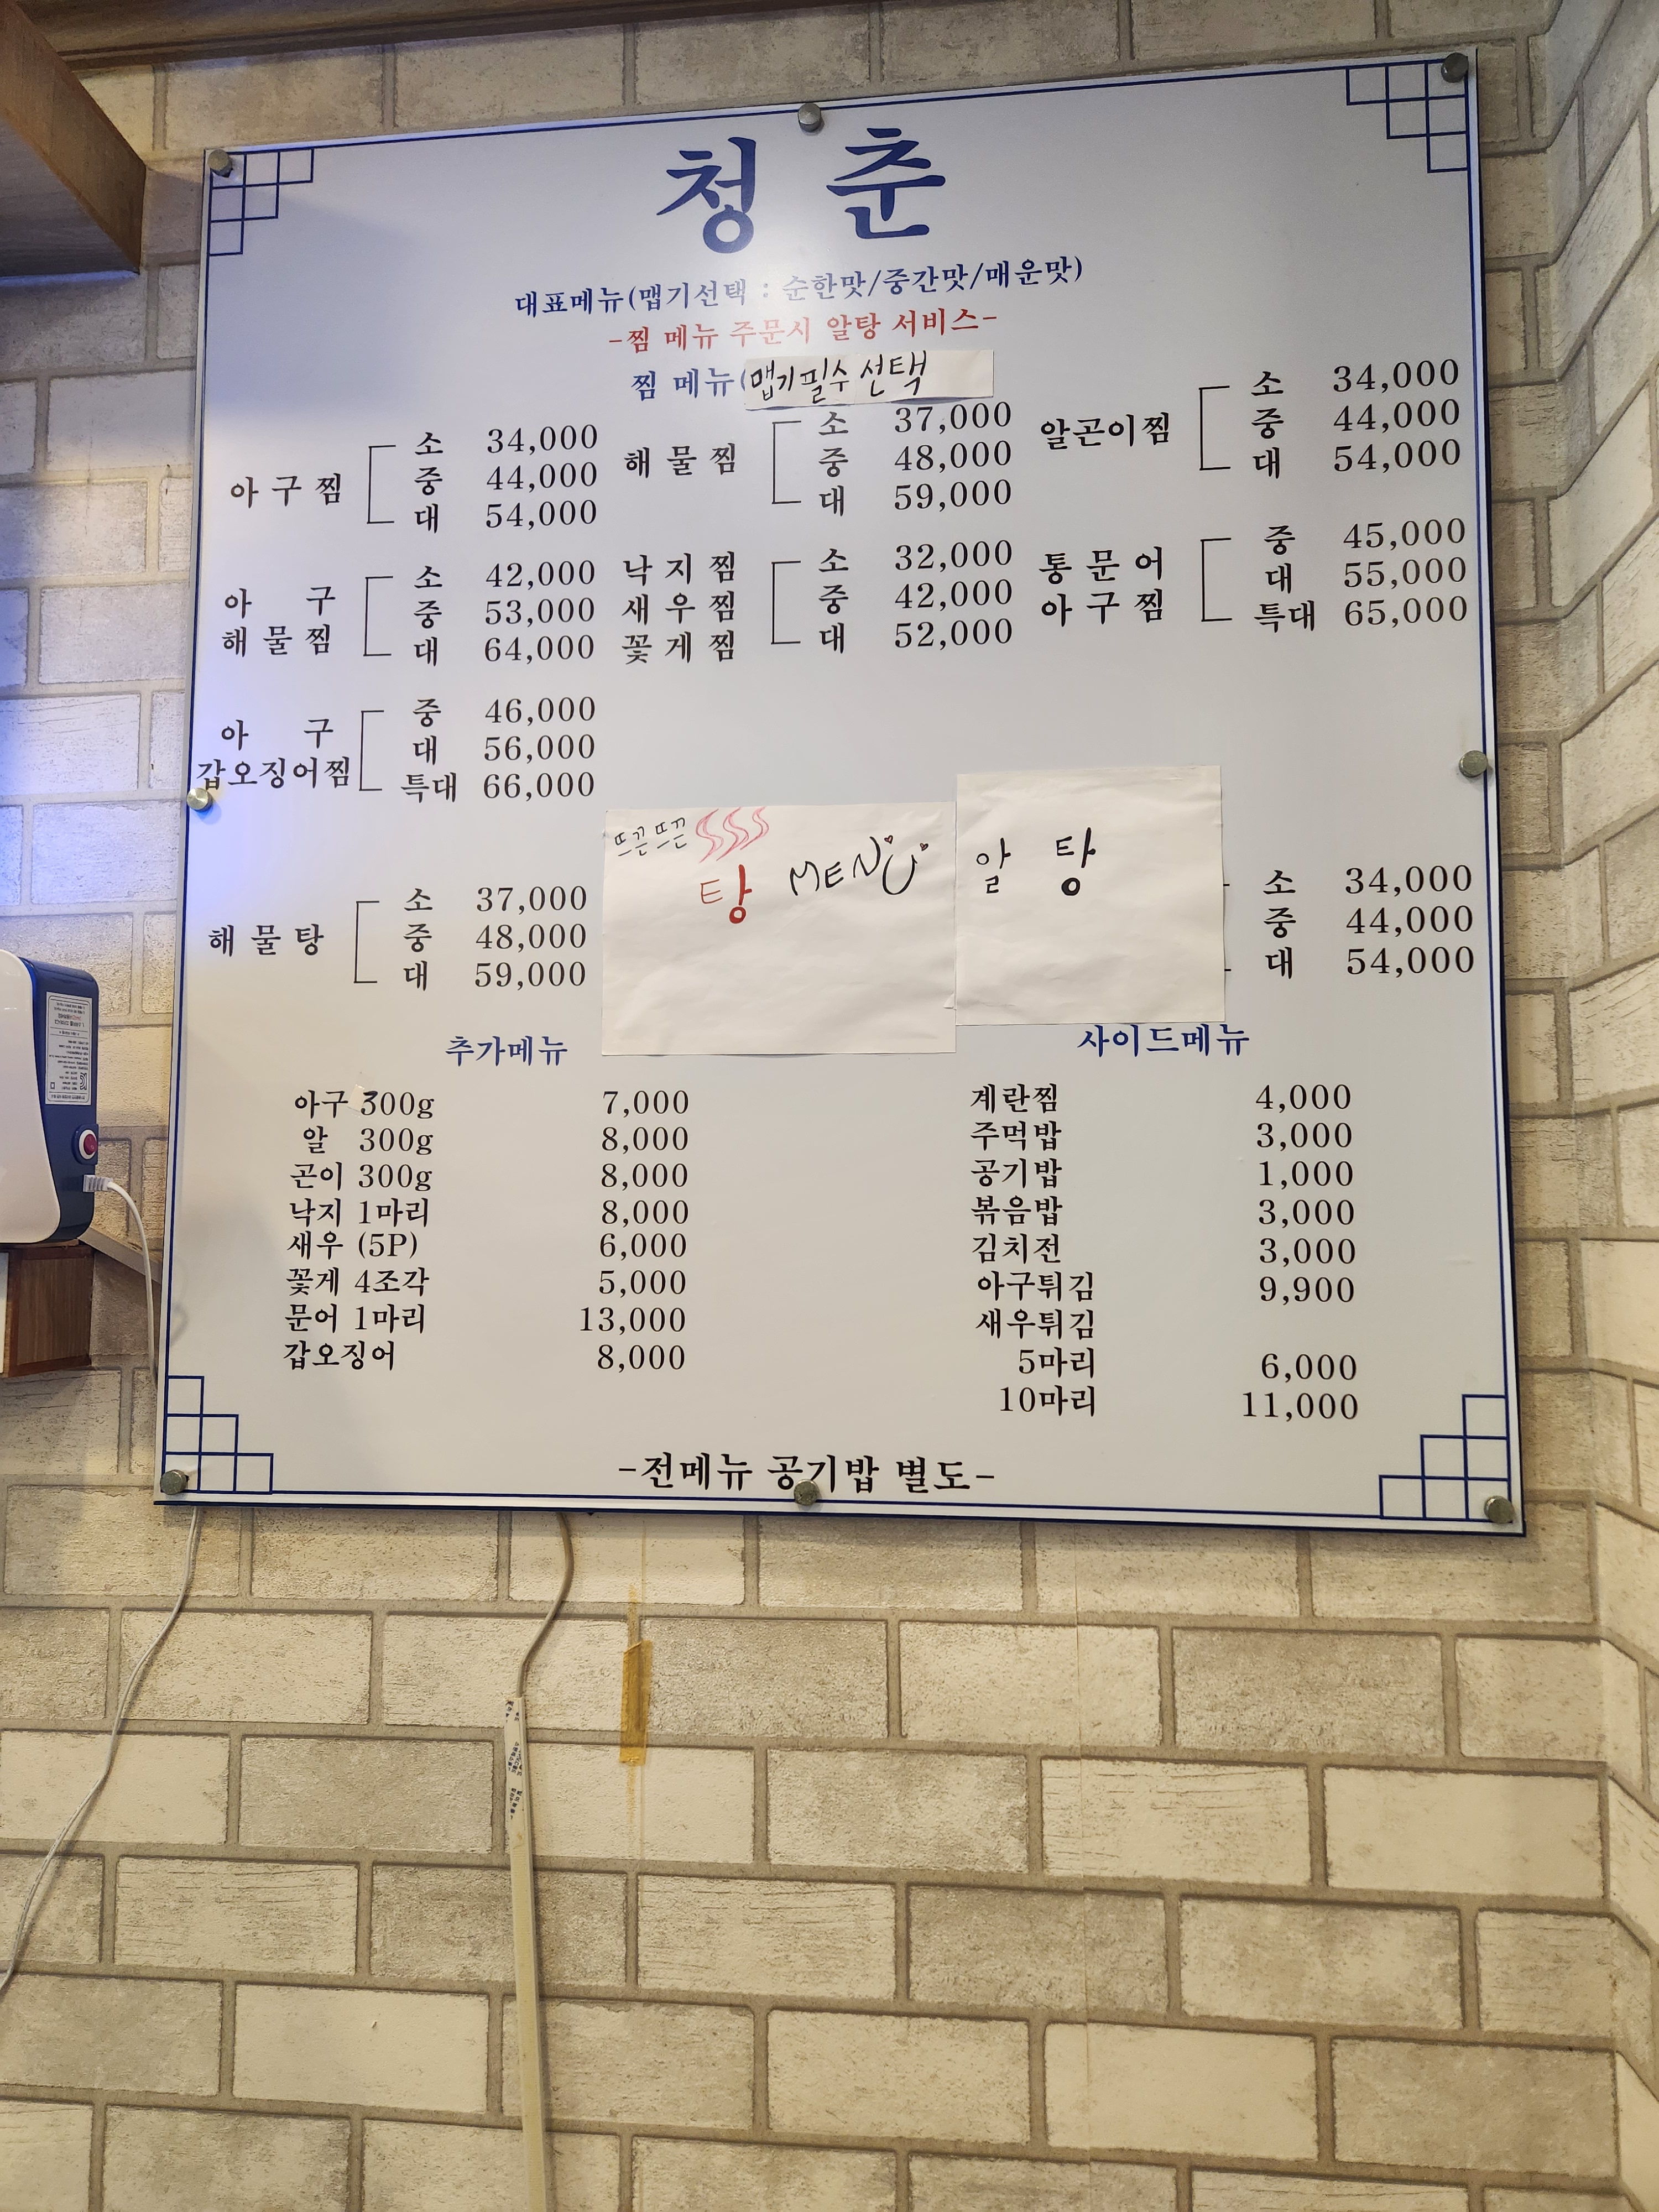 청 춘
대표메뉴(맵기선택 : 순한맛/중간맛/매운맛)
-찜 메뉴 주문시 알탕 서비스-
찜 메뉴(맵기필수선택
아구찜
소 34,000
중 44,000
대 54,000
해물찜
소 37,000
중 48,000
대 59,000
알곤이찜
소 34,000
중 44,000
대 54,000
아 구
해물찜
소 42,000
중 53,000
대 64,000
낙지찜
새우찜
꽃게찜
소 32,000
중 42,000
대 52,000
통문어
아구찜
중 45,000
대 55,000
특대 65,000
아 구
갑오징어찜
중 46,000
대 56,000
특대 66,000
뜨끈뜨끈
탕 MENU
해물탕
소 37,000
중 48,000
대 59,000
알 탕
소 34,000
중 44,000
대 54,000
추가메뉴
아구 300g 7,000
알 300g 8,000
곤이 300g 8,000
낙지 1마리 8,000
새우 (5P) 6,000
꽃게 4조각 5,000
문어 1마리 13,000
갑오징어 8,000
사이드메뉴
계란찜 4,000
주먹밥 3,000
공기밥 1,000
볶음밥 3,000
김치전 3,000
아구튀김 9,900
새우튀김
5마리 6,000
10마리 11,000
-전메뉴 공기밥 별도-